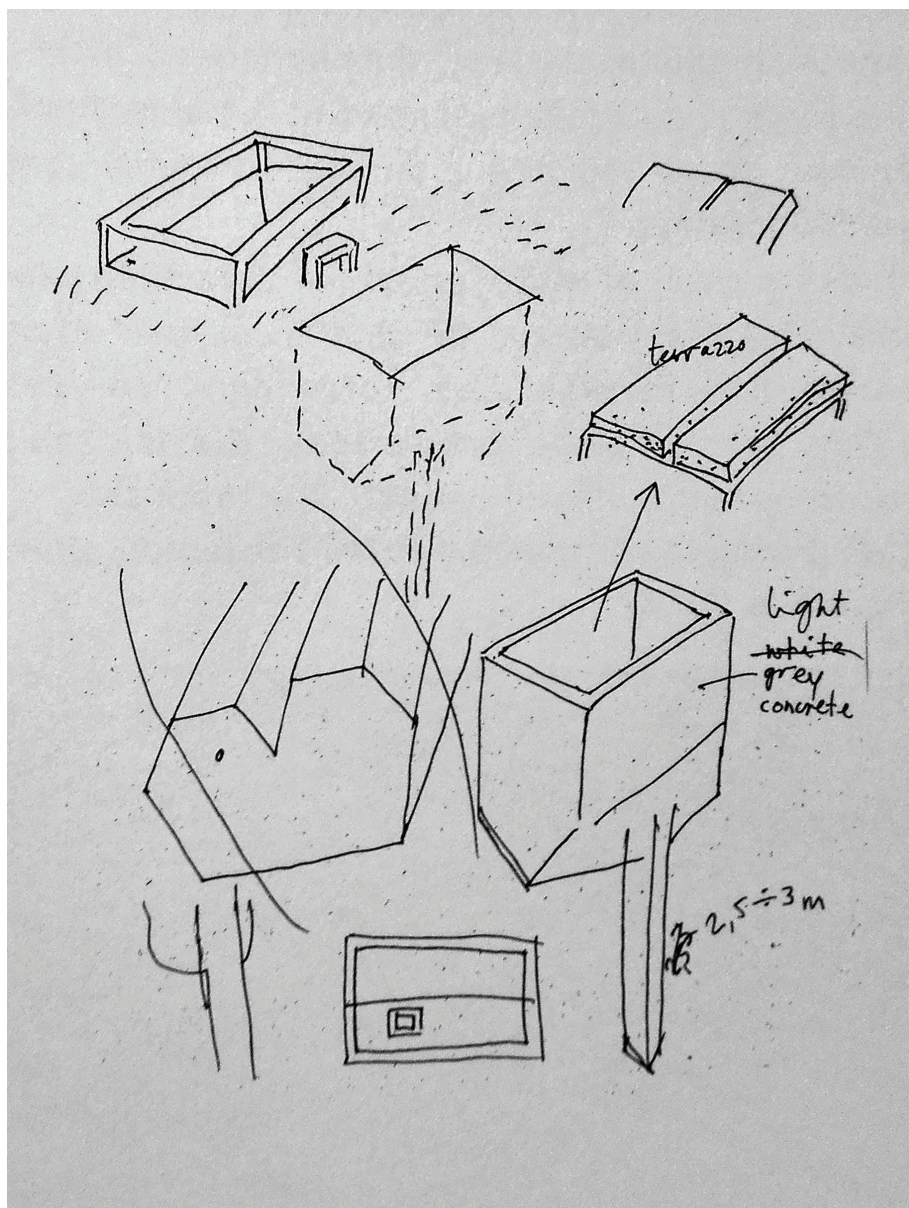 terrazzo
light
white
grey
concrete
2,5÷3 m